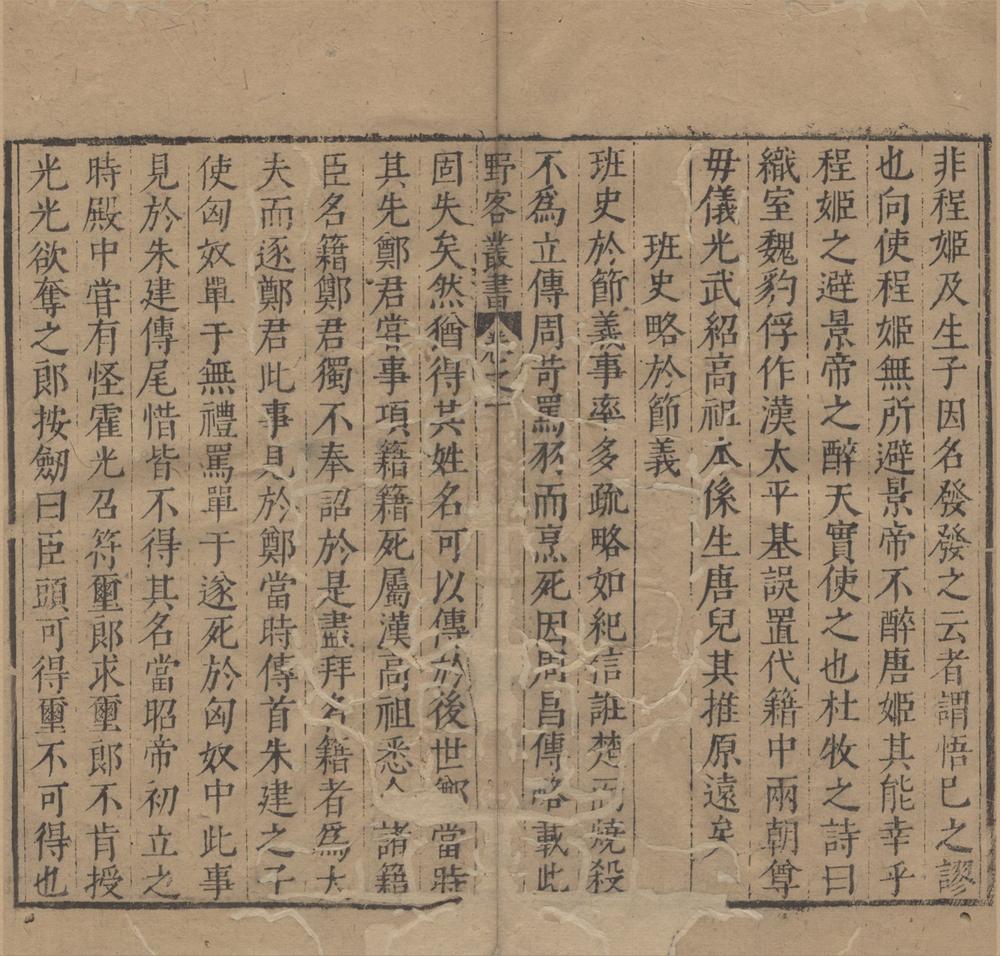 非程姬及生子因名發發之云者謂悟已之謬
也向使程姬無所避景帝不醉唐姬其能幸乎
程姬之避景帝之醉天實使之也杜牧之詩曰
織室魏豹俘作漢太平基誤置代籍中兩朝尊
毋儀光武紹高祖本係生唐兒其推原遠矣
班史略於節義
班史於節義事率多疏略如紀信誑楚而燒殺
不爲立傳周苛罵羽而烹死因周昌傳略載此
野客叢書 卷之一
固失矣然猶得其姓名可以傳於後世鄭當時
其先鄭君嘗事項籍籍死屬漢高祖悉令諸籍
臣名籍鄭君獨不奉詔於是盡拜名籍者爲大
夫而逐鄭君此事見於鄭當時傳首朱建之子
使匈奴單于無禮罵單于遂死於匈奴中此事
見於朱建傳尾惜皆不得其名當昭帝初立之
時殿中甞有怪霍光召符璽郎求璽郎不肯授
光光欲奪之郎按劒曰臣頭可得璽不可得也